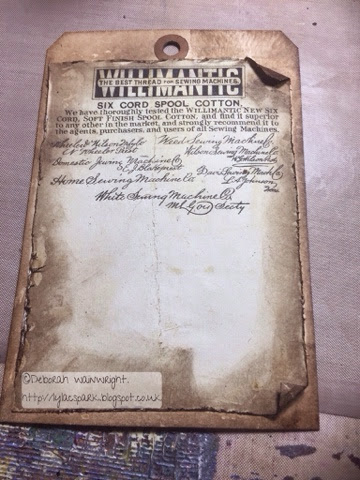 WILLIMANTIC
THE BEST THREAD FOR SEWING MACHINES
SIX CORD SPOOL COTTON,
We have thoroughly tested the WILLIMANTIC NEW SIX
CORD, SOFT FINISH SPOOL COTTON, and find it superior
to any other in the market, and strongly recommend it to
the agents, purchasers, and users of all Sewing Machines.
Wheeler & Wilson Weed Sewing Machine Co
Wheeler Prest Wilson Sewing Machine Co
Domestic Sewing Machine Co
Davis Sewing Mach Co
Home Sewing Machine Co Johnson
White Sewing Machine Co
Secty
©Deborah Wainwright.
http://lylacspark.blogspot.co.uk